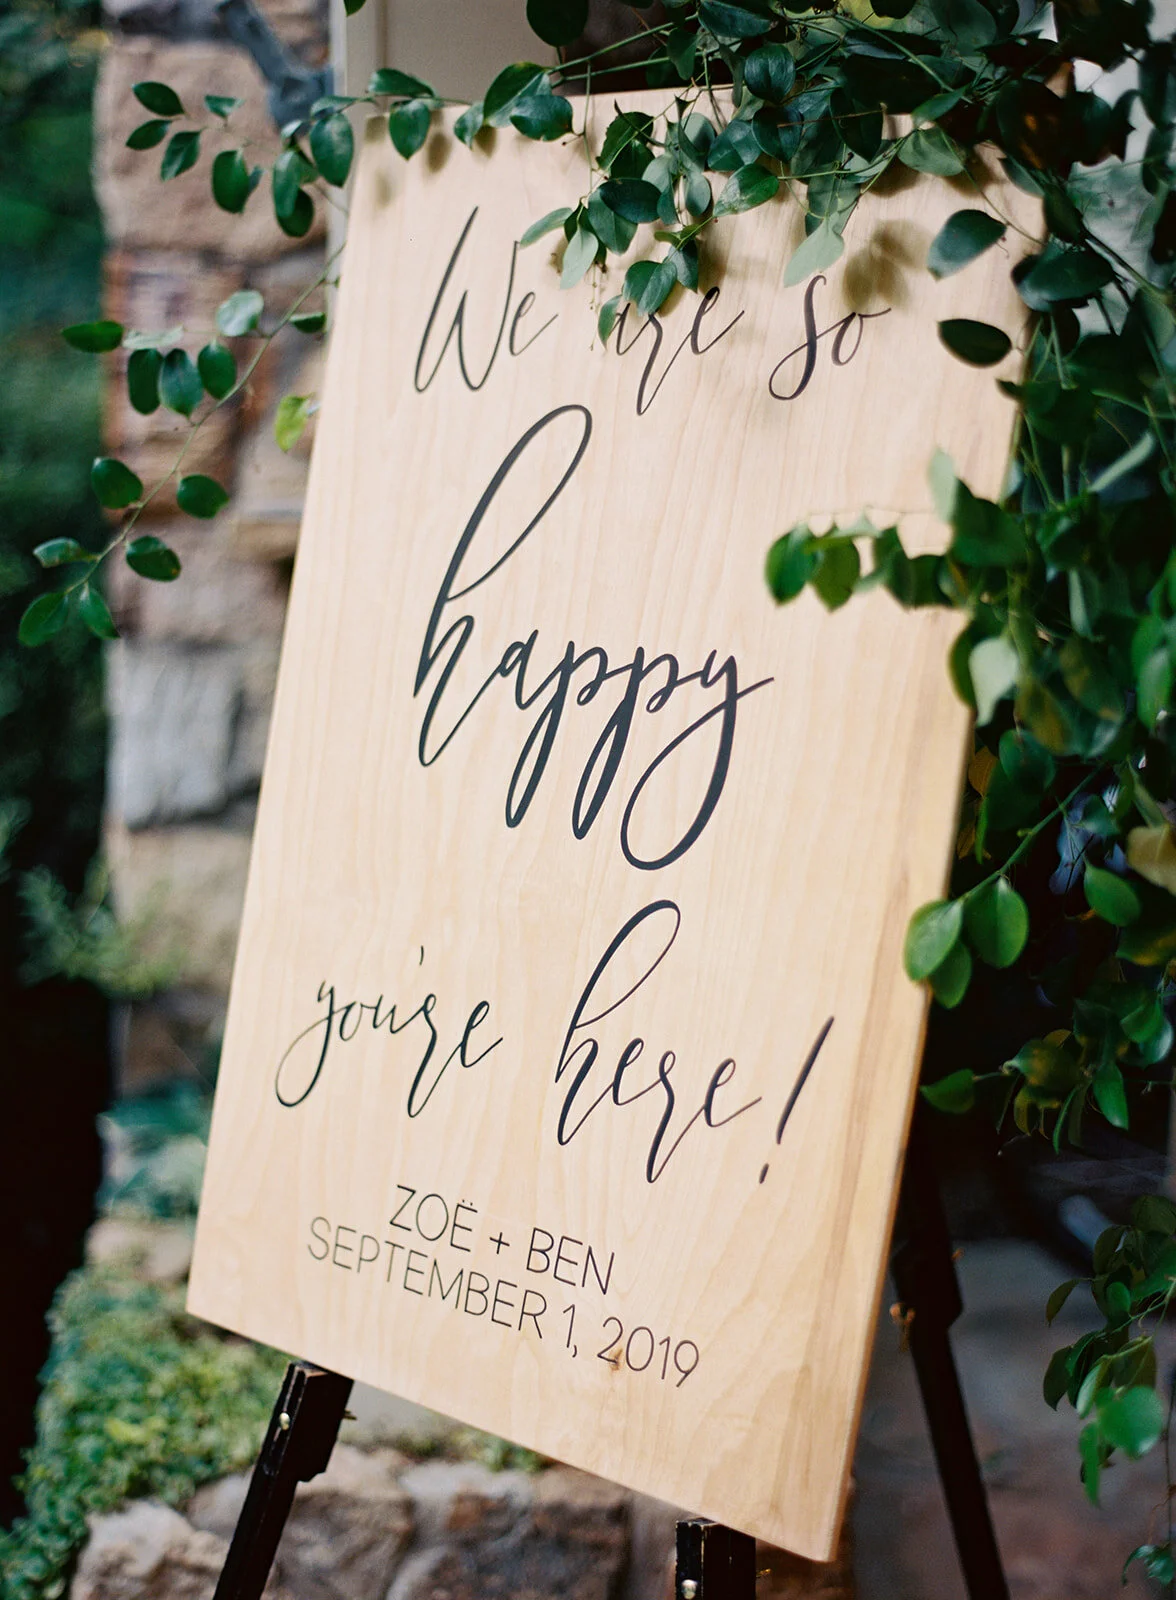 We are so
happy
you're here!
ZOË + BEN
SEPTEMBER 1, 2019